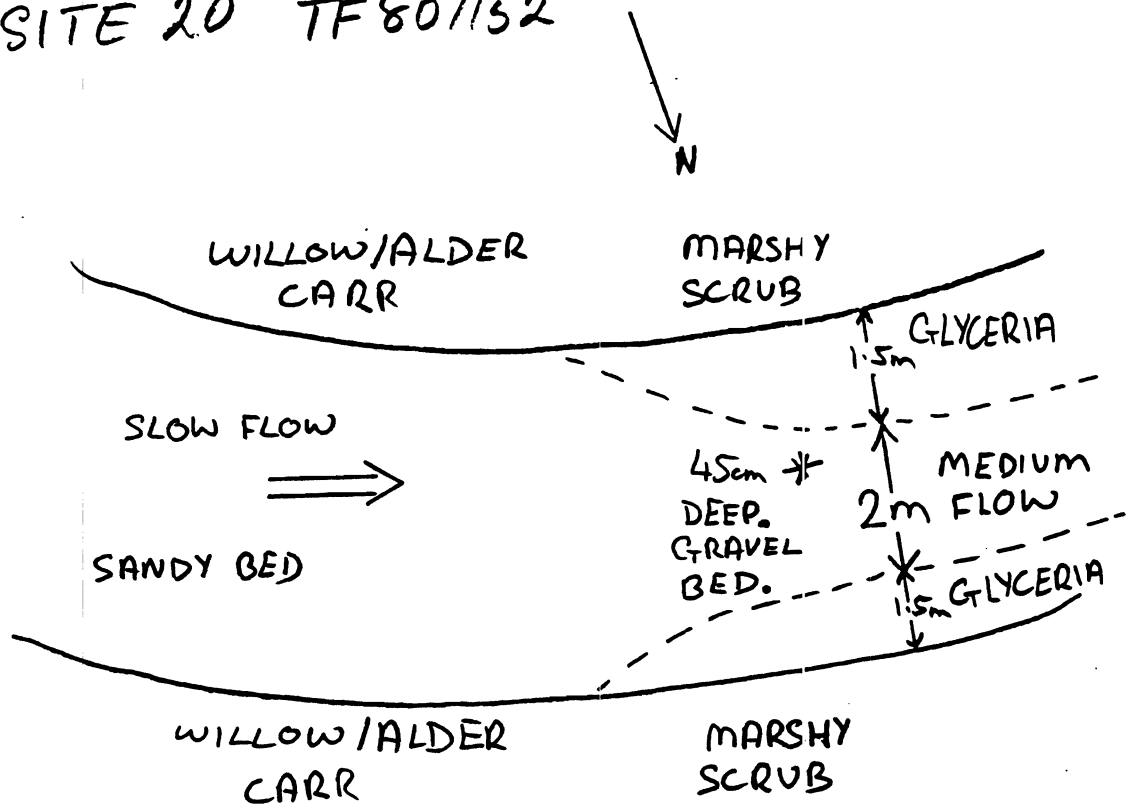 SITE 20 TF 801132
N
WILLOW/ALDER
CARR
MARSHY
SCRUB
GLYCERIA
1.5m
SLOW FLOW
45cm
DEEP.
GRAVEL
BED.
2m
MEDIUM
FLOW
SANDY BED
1.5m GLYCERIA
WILLOW/ALDER
CARR
MARSHY
SCRUB